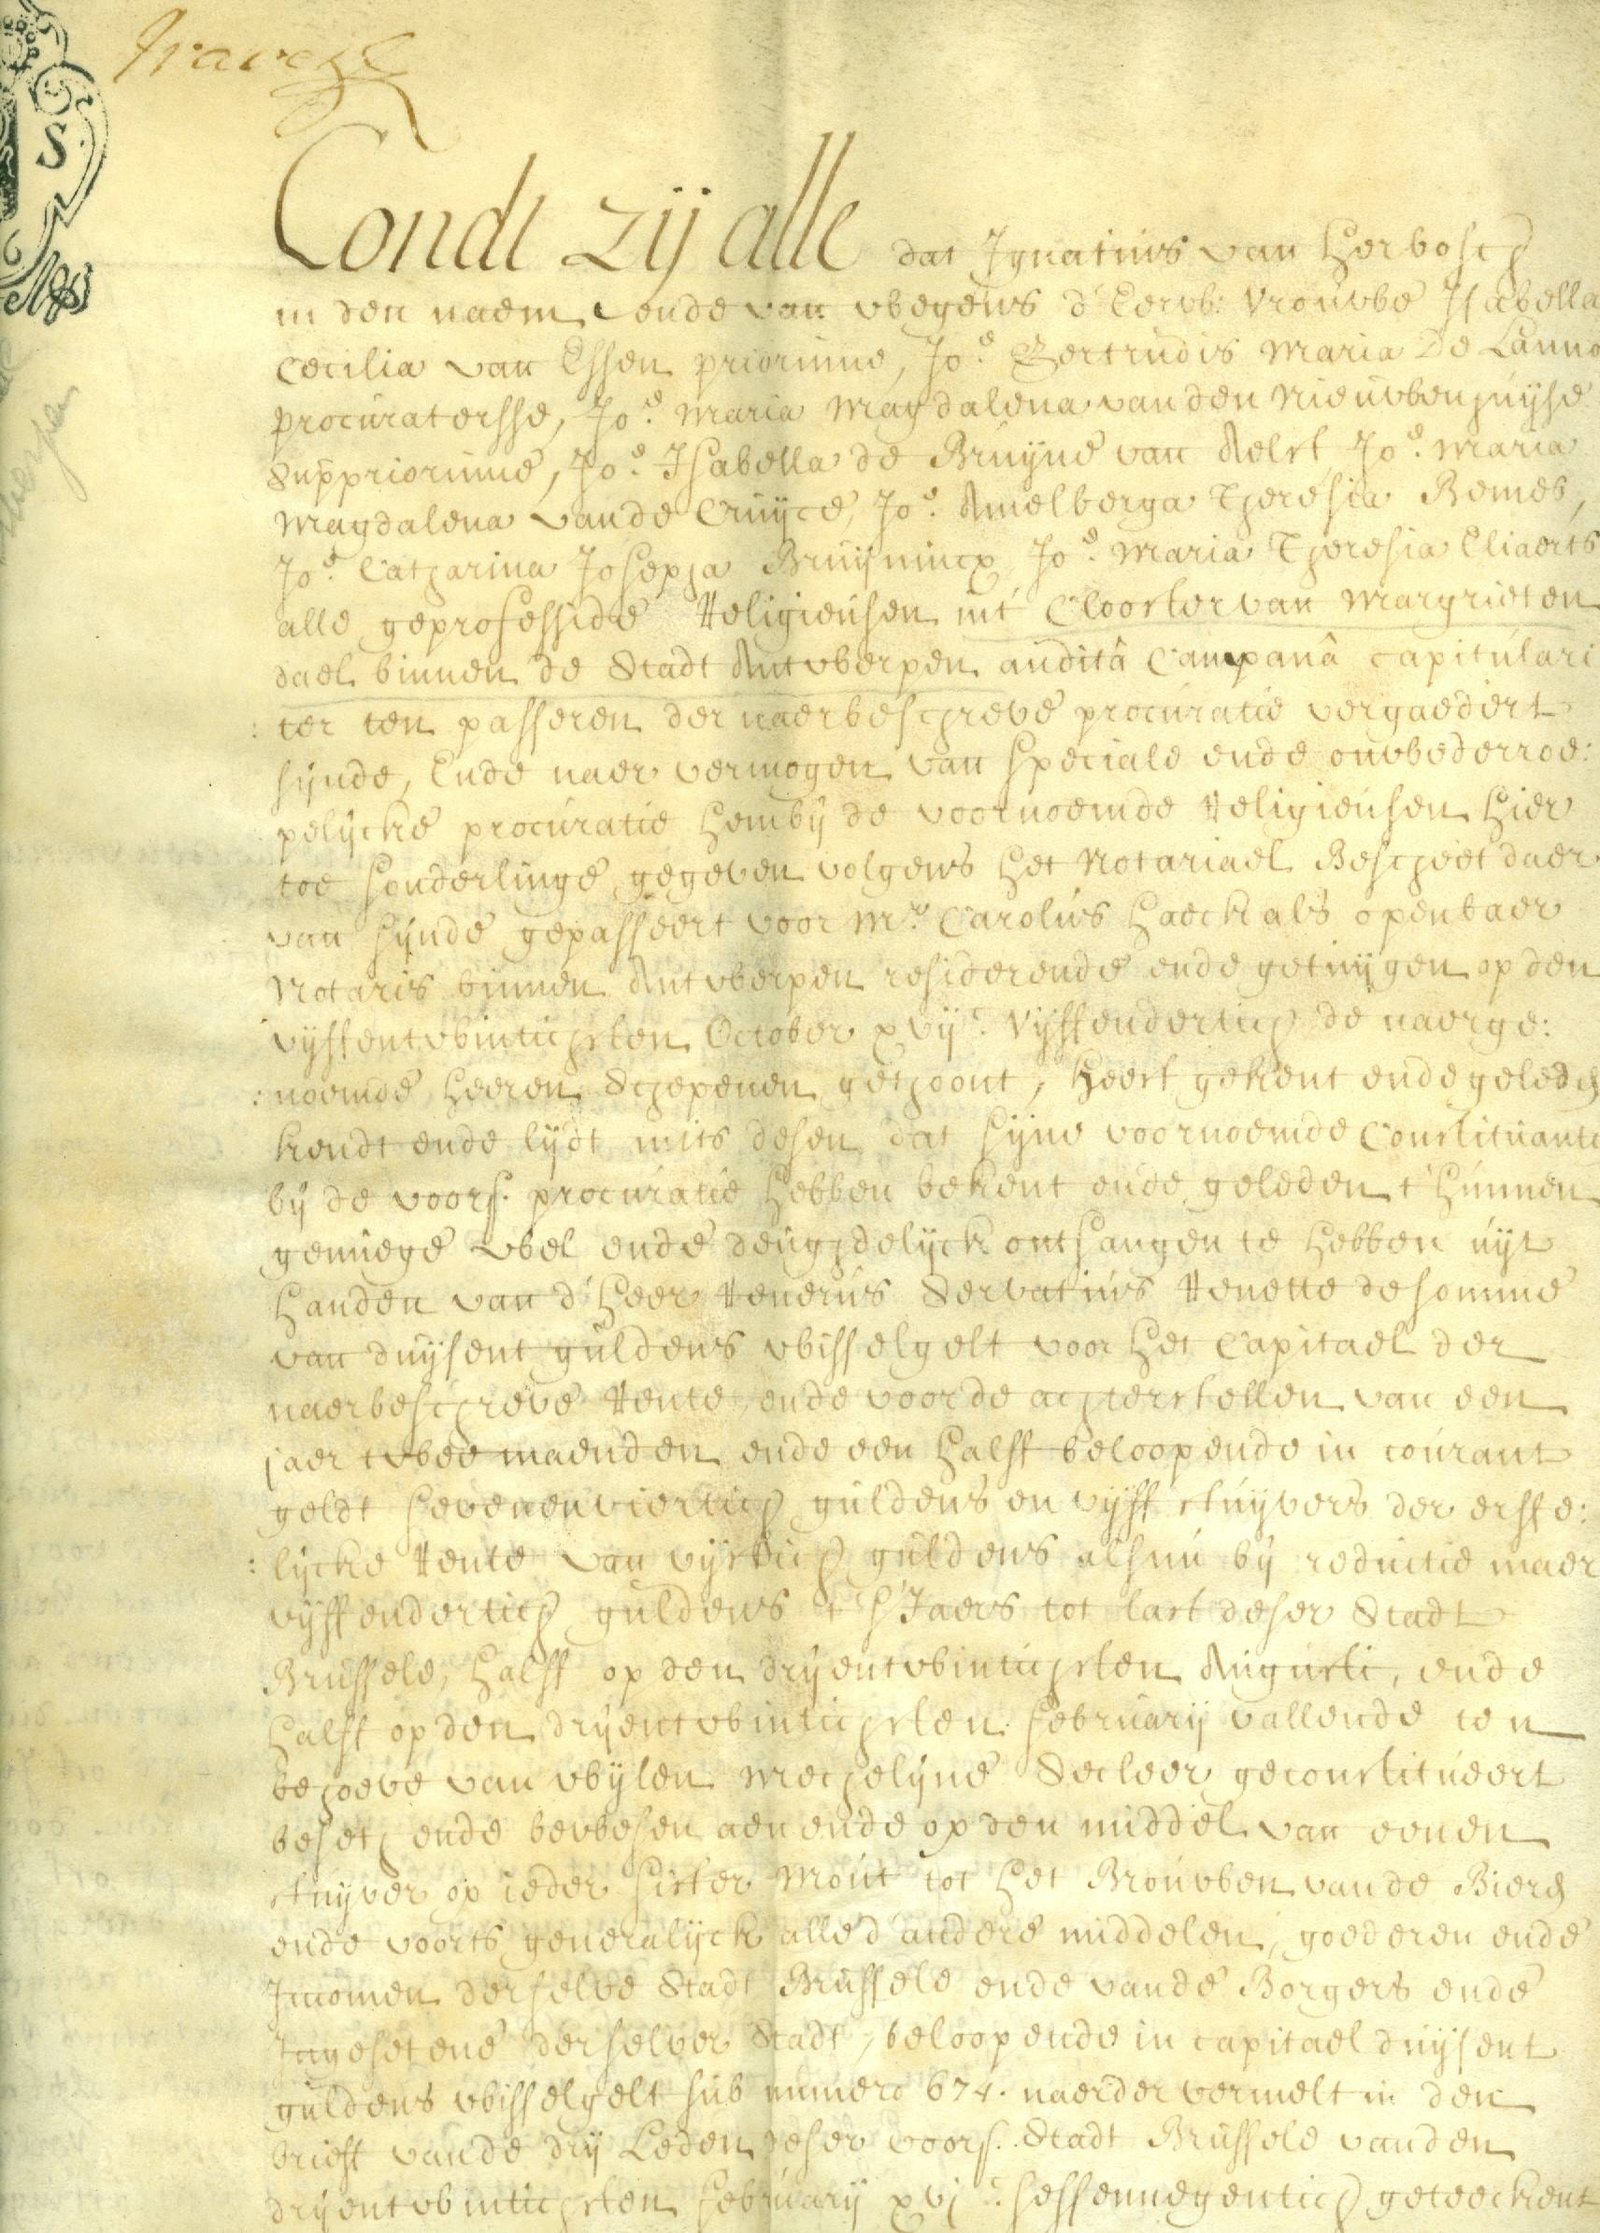 S.
Condt zij alle dat Ignatius van Herbosch
in den naem ende van wegens d'Eerw: Vrouwe Isabella
Cecilia van Essen priorinne, Jo.e Gertrudis Maria De Lanno
procuratersse, Jo.e Maria Magdalena van den Nieuwenhuijse
Suppriorinne, Jo.e Isabella de Bruijne van Aelst Jo.e Maria
Magdalena vande Cruijce, Jo.e Amelberga Theresia Bemes,
Jo.e Catharina Josepha Bruijnincx Jo.e Maria Theresia Eliaerts
alle geprofesside Religieusen int Clooster van Margrieten
dael binnen de Stadt Antwerpen auditâ Campanâ capitulari
: ter ten passeren der naerbeschreve procuratie vergaedert
sijnde, Ende naer vermogen van speciale ende onwederroe:
pelijcke procuratie hem bij de voornoemde Religieusen hier
toe sonderlinge gegeven volgens het Notariael Bescheet daer
van sijnde gepasseert voor M.r Carolus Haeck als openbaer
Notaris binnen Antwerpen residerende ende getuijgen op den
vijffentwintichsten October xvij.c vijffendertich de naerge:
: noemde heeren Schepenen gethoont, heeft gekent ende geleden
kendt ende lijdt mits desen dat sijne voornoemde Constituante
bij de voors. procuratie hebben bekent ende geleden t'hunnen
genuege wel ende deughdelijck ontfangen te hebben uijt
handen van d'heer Renerus Servatius Renette de somme
van duijsent guldens wisselgelt voor het Capitael der
naerbeschreve Rente ende voor de achterstellen van een
jaer twee maenden ende een halff beloopende in courant
geldt sevenenviertich guldens en vijff stuijvers der erffe:
: lijcke Rente van vijftich guldens alsnu bij reductie maer
vijffendertich guldens t s'Jaers tot last deser Stadt
Brussele, halff op den drijentwintichsten Augusti, ende
halff op den drijentwintichsten februarij vallende ten
behoeve van wijlen Mechelijne Secleer geconstitueert
beseth ende bewesen aen ende op den middel van eenen
stuijver op ieder sister Mout tot het Brouwen vande Bieren
ende voorts generalijck alle d'andere middelen, goederen ende
Incomen derselve Stadt Brussele ende vande Borgers ende
Ingesetene derselver Stadt, beloopende in capitael duijsent
guldens wisselgelt sub numero 674. naerder vermelt in den
brieff vande drij Leden deser voors. Stadt Brussele vanden
drijentwintichsten februarij xvj.c sessennegentich geteeckent